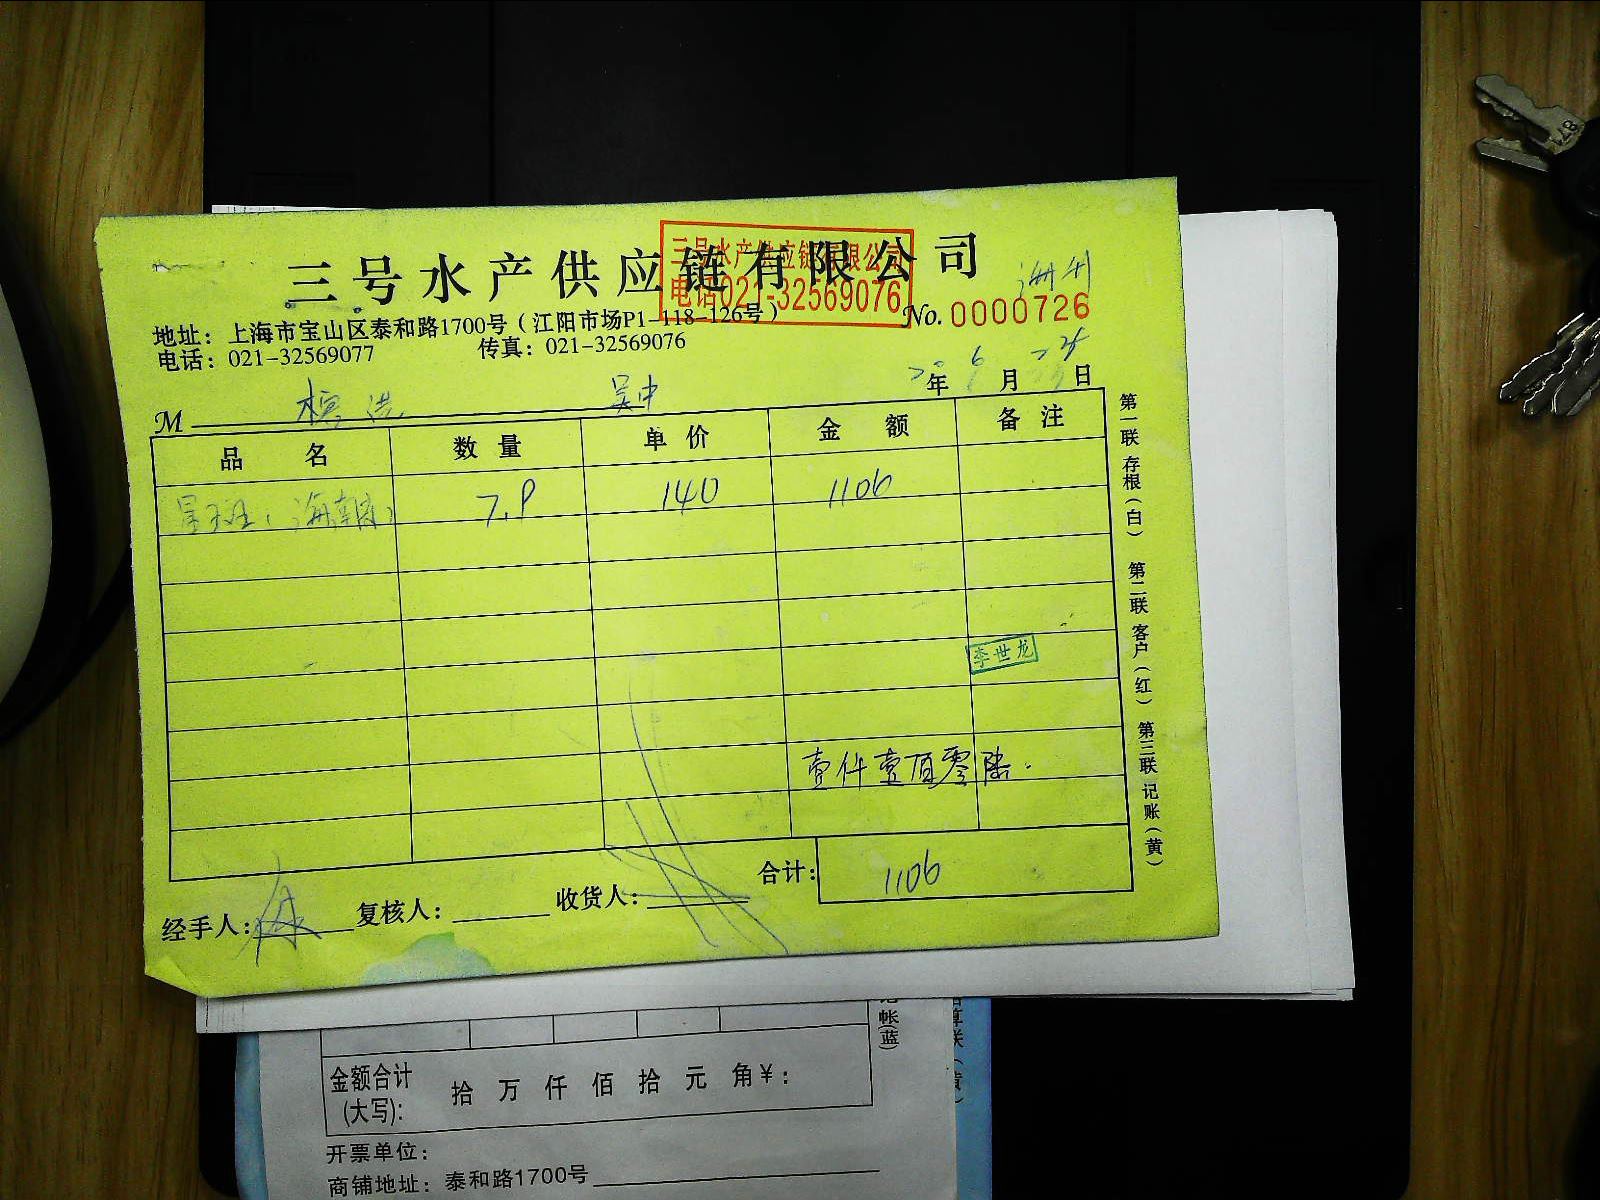 三号水产供应链有限公司
三号水产供应链有限公司
电话021-32569076
地址：上海市宝山区泰和路1700号（江阳市场P1-118-126号）
No. 0000726
电话：021-32569077 传真：021-32569076
年 6 月 24 日
M 吴中
品名 数量 单价 金额 备注
星斑（海南岛） 7.9 140 1106
李世龙
壹仟壹佰零陆
合计： 1106
经手人： 复核人： 收货人：
第一联 存根（白） 第二联 客户（红） 第三联 记账（黄）
帐(蓝)
金额合计
(大写)： 拾 万 仟 佰 拾 元 角 ¥：
开票单位：
商铺地址：泰和路1700号
78